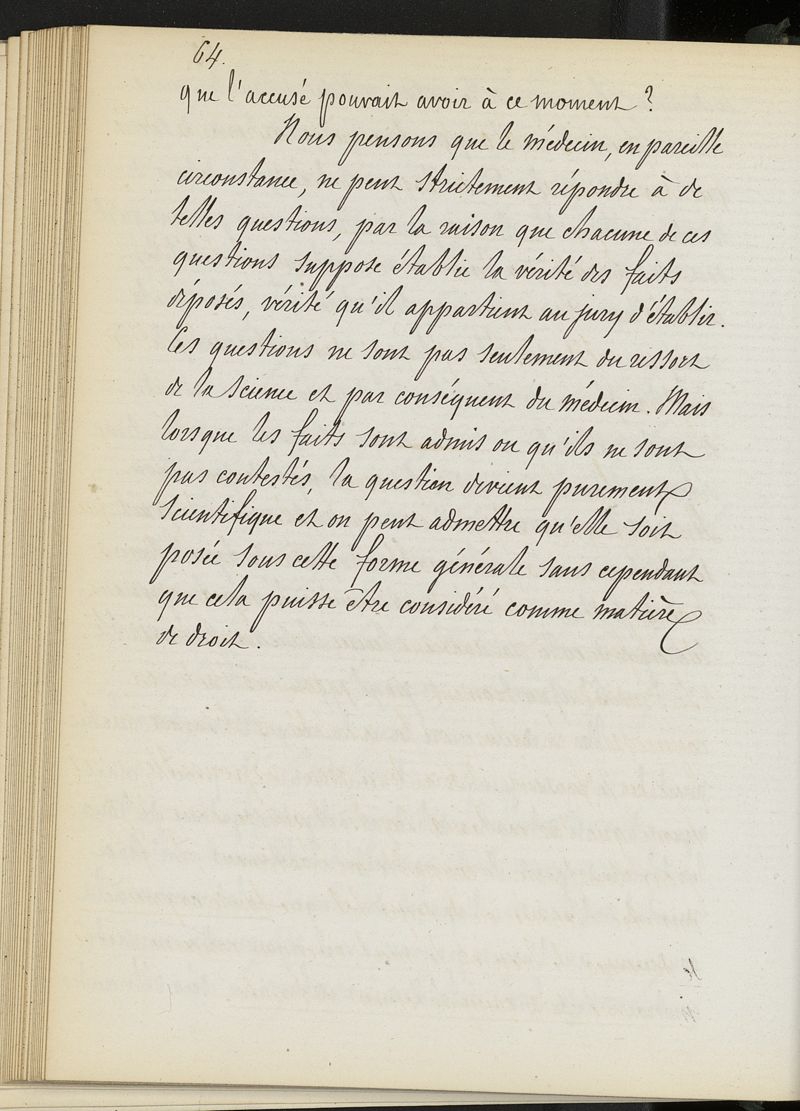 64.
que l'accusé pouvait avoir à ce moment ?
Nous pensons que le médecin, en pareille
circonstance, ne peut strictement répondre à de
telles questions, par la raison que chacune de ces
questions suppose établie la vérité des faits
déposés, vérité qu'il appartient au jury d'établir.
Ces questions ne sont pas seulement du ressort
de la science et par conséquent du médecin. Mais
lorsque les faits sont admis ou qu'ils ne sont
pas contestés, la question devient purement
scientifique et on peut admettre qu'elle soit
posée sous cette forme générale sans cependant
que cela puisse être considéré comme matière
de droit.